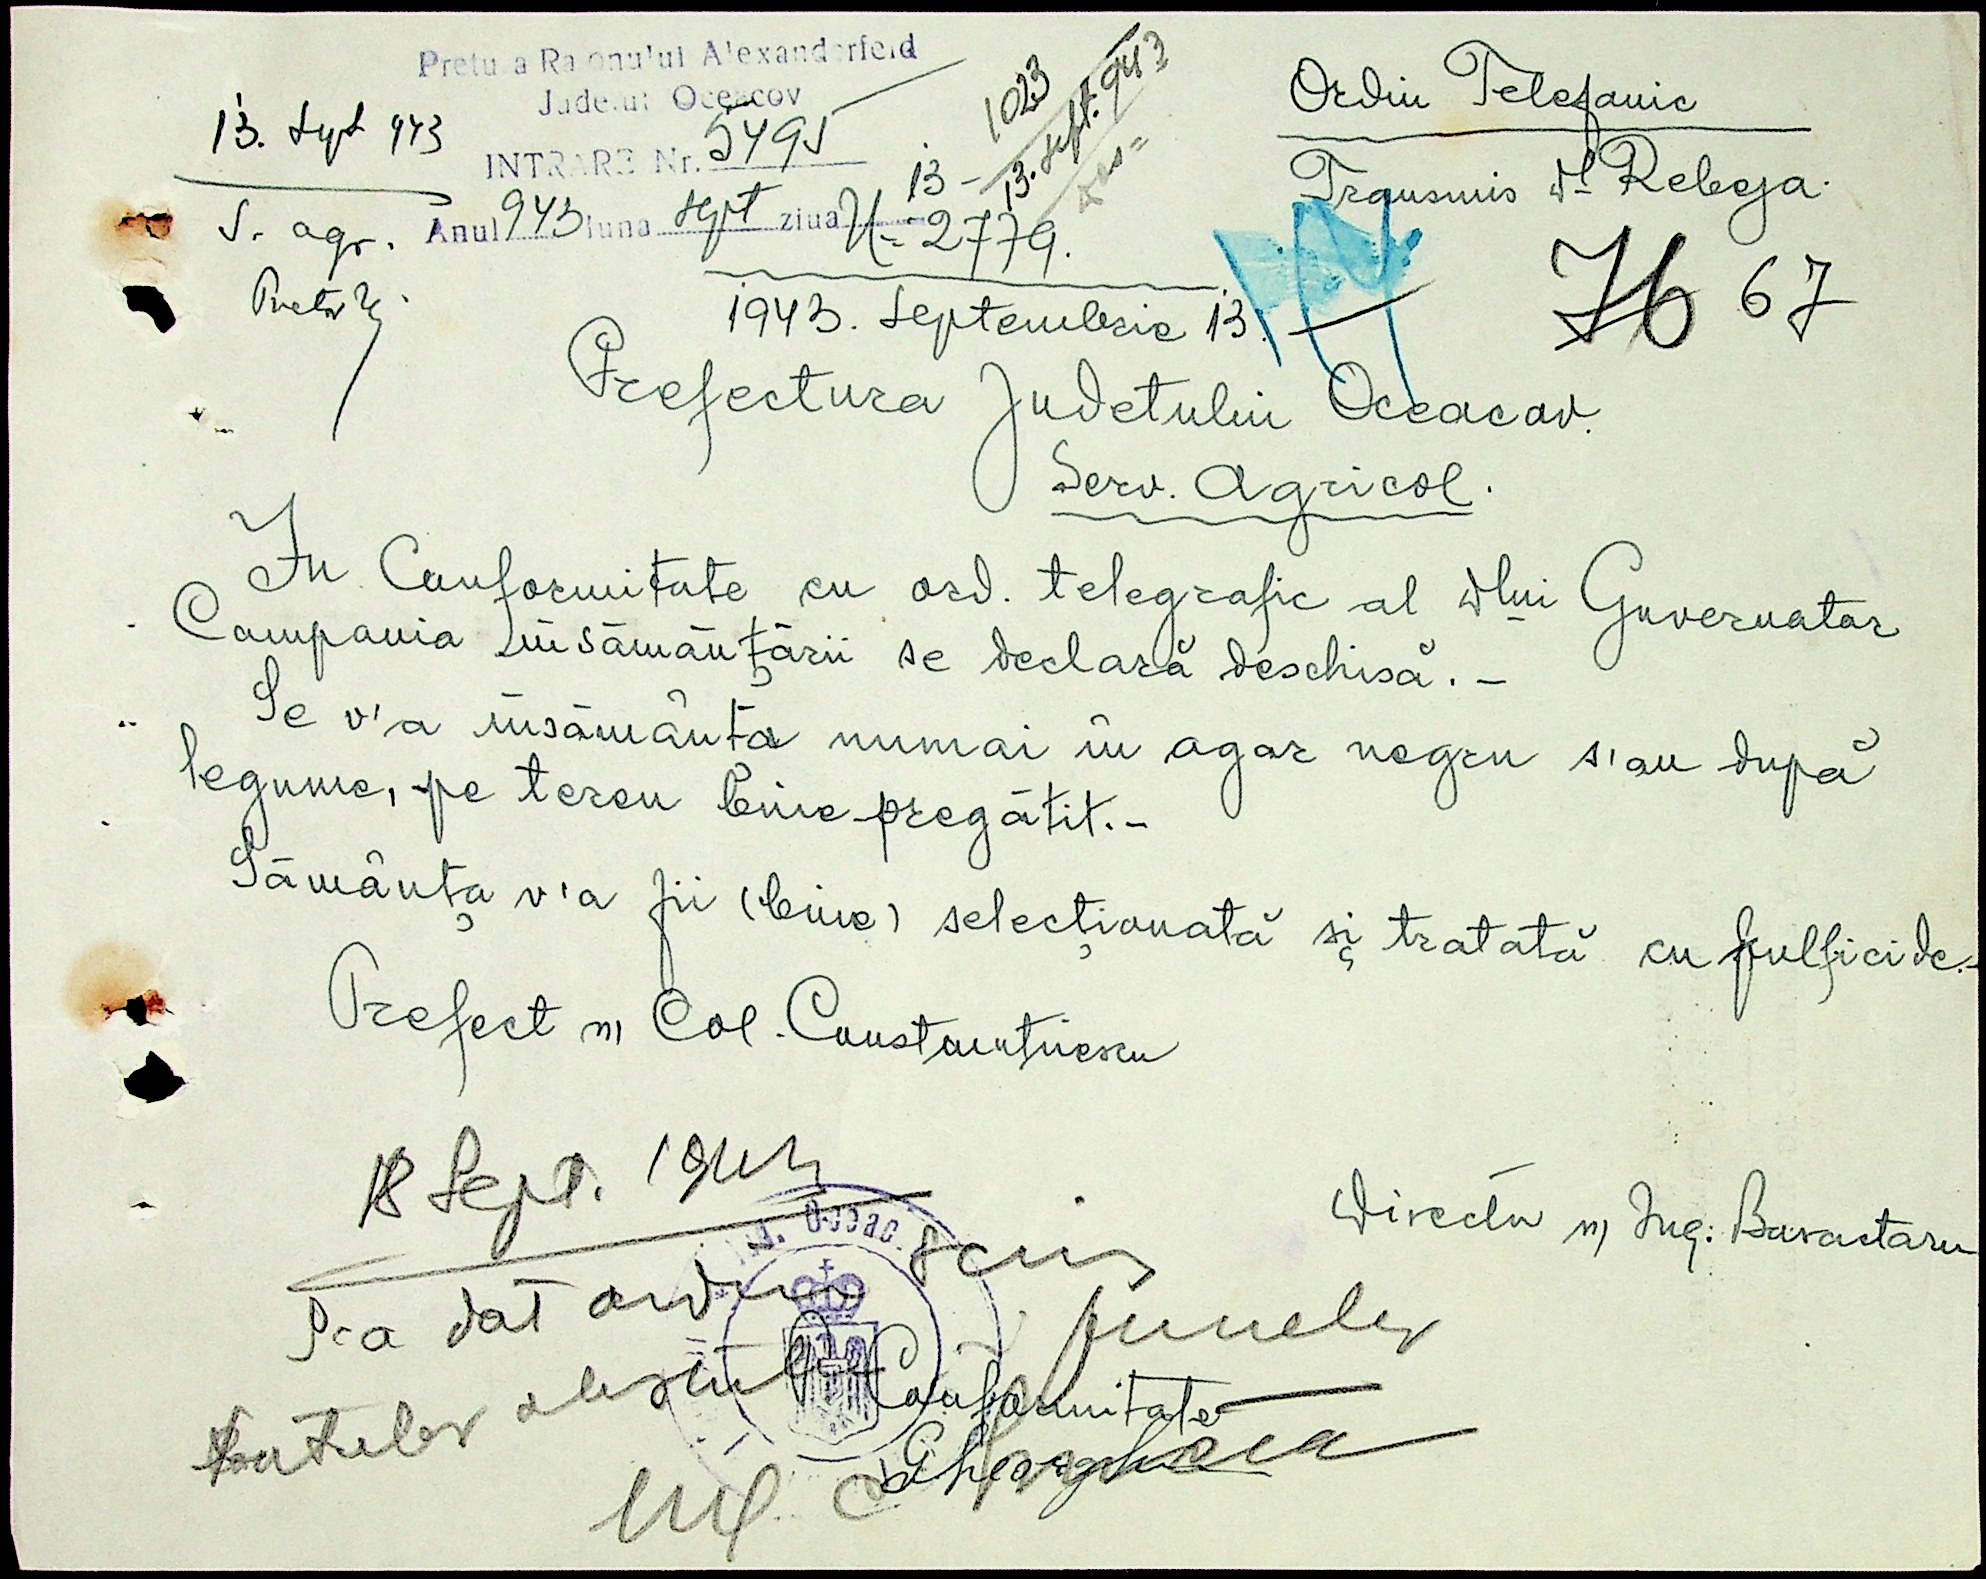 Pretura Raionului Alexanderfeld
Judetul Oceacov
INTRARE Nr. 5495
Anul 943 luna Sept ziua 13
13. Sept 943
S. agr.
Pretor
1023
13. Sept. 943
Ordin Telefonic
Transmis dl Rebeja.
N= 2779.
67
1943. Septembrie 13.
Prefectura Judetului Oceacov.
Serv. Agricol.
In Conformitate cu ord. telegrafic al dlui Guvernator
Campania însămânțării se declară deschisă.-
Se v'a însământa numai în agor negru s'au după
legume, pe teren bine pregătit.-
Sămânța v'a fii (bine) selecționată și tratată cu fulficide.-
Prefect ss) Col. Constantinescu
Director ss) Ing:
18 Sept. 1943
S-a dat ordin scris
tuturor
Conformitate
Gheorghe
Jud. Oceac.